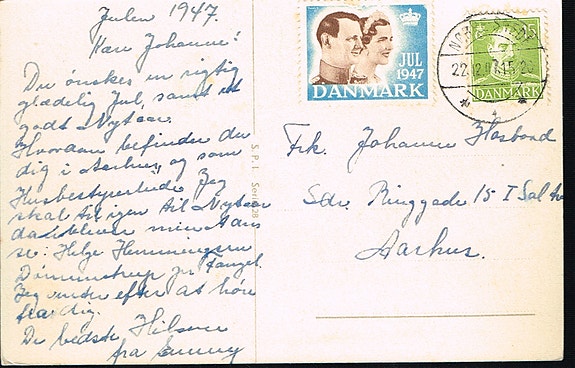 Julen 1947.
Kære Johanne!
Du ønskes en rigtig
glædelig Jul, samt et
godt Nytaar.
Hvordan befinder du
dig i Aarhus, og som
Husbestyrerinde. Jeg
skal til igen til Nytaar
da bliver min Adres
se: Helge Hemmingsen
pr. Fangel.
Jeg venter efter at høre
fra dig.
De bedste Hilsner
fra Emmy
S.P.I. Seri 28
JUL
1947
DANMARK
22.12.47.15
DANMARK
Frk. Johanne Hosbond
Sdr. Ringgade 15 I Sal
Aarhus.